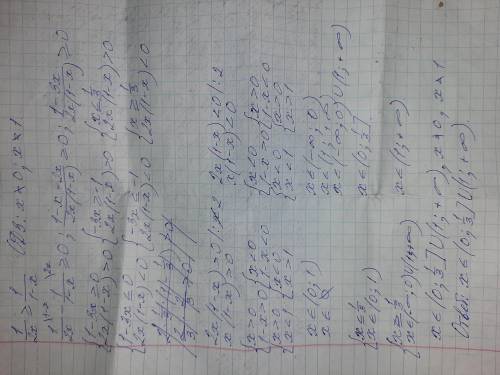 1/2x ≥ 1/1-x   ОДЗ: x ≠ 0, x ≠ 1
1/2x - 1/1-x ≥ 0; 1-x-2x/2x(1-x) ≥ 0; 1-3x/2x(1-x) ≥ 0
{1-3x ≥ 0 {-3x ≥ -1 {x ≤ 1/3
{2x(1-x) > 0 {2x(1-x) > 0 {2x(1-x) > 0
{1-3x ≤ 0 {-3x ≤ -1 {x ≥ 1/3
{2x(1-x) < 0 {2x(1-x) < 0 {2x(1-x) < 0
2x(1-x) > 0 |:2   2x(1-x) < 0 |:2
x(1-x) > 0   x(1-x) < 0
{x > 0 {x < 0   {x < 0 {x > 0
{1-x > 0 {1-x < 0   {1-x > 0 {1-x < 0
{x > 0 {x < 0   {x < 0 {x > 0
{x < 1 {x > 1   {x < 1 {x > 1
x ∈ (0; 1)   x ∈ (-∞; 0)
x ∈ ∅   x ∈ (1; +∞)
x ∈ (-∞; 0) ∪ (1; +∞)
{x ≤ 1/3
{x ∈ (0; 1)   x ∈ (0; 1/3]
{x ≥ 1/3
{x ∈ (-∞; 0) ∪ (1; +∞)   x ∈ (1; +∞)
x ∈ (0; 1/3] ∪ (1; +∞), x ≠ 0, x ≠ 1
Ответ: x ∈ (0; 1/3] ∪ (1; +∞).